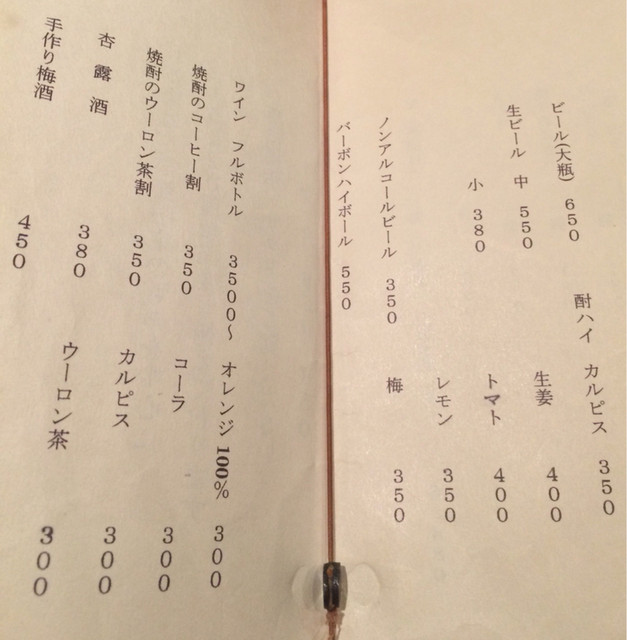 ビール(大瓶) 650
生ビール 中 550
小 380
ノンアルコールビール 350
バーボンハイボール 550
酎ハイ カルピス 350
生姜 400
トマト 400
レモン 350
梅 350
ワイン フルボトル 3500〜
焼酎のコーヒー割 350
焼酎のウーロン茶割 350
杏露酒 380
手作り梅酒 450
オレンジ100% 300
コーラ 300
カルピス 300
ウーロン茶 300